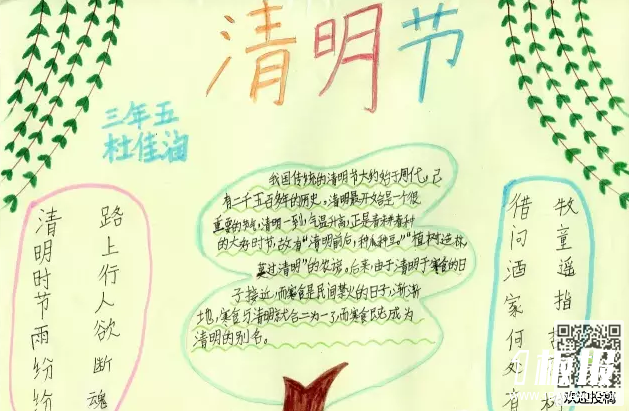 清明节
三年五
杜佳涵
清明时节雨纷纷
路上行人欲断魂
借问酒家何处有
牧童遥指
我国传统的清明节大约始于周代,己
有二千五百多年的历史。清明最开始是一个很
重要的节气,清明一到,气温升高,正是春耕春种
的大好时节,故有“清明前后,种瓜种豆。”“植树造林,
莫过清明”的农谚。后来,由于清明于寒食的日
子接近,而寒食是民间禁火的日子,渐渐
地,寒食与清明就合二为一了,而寒食也成为
清明的别名。
欢迎投稿